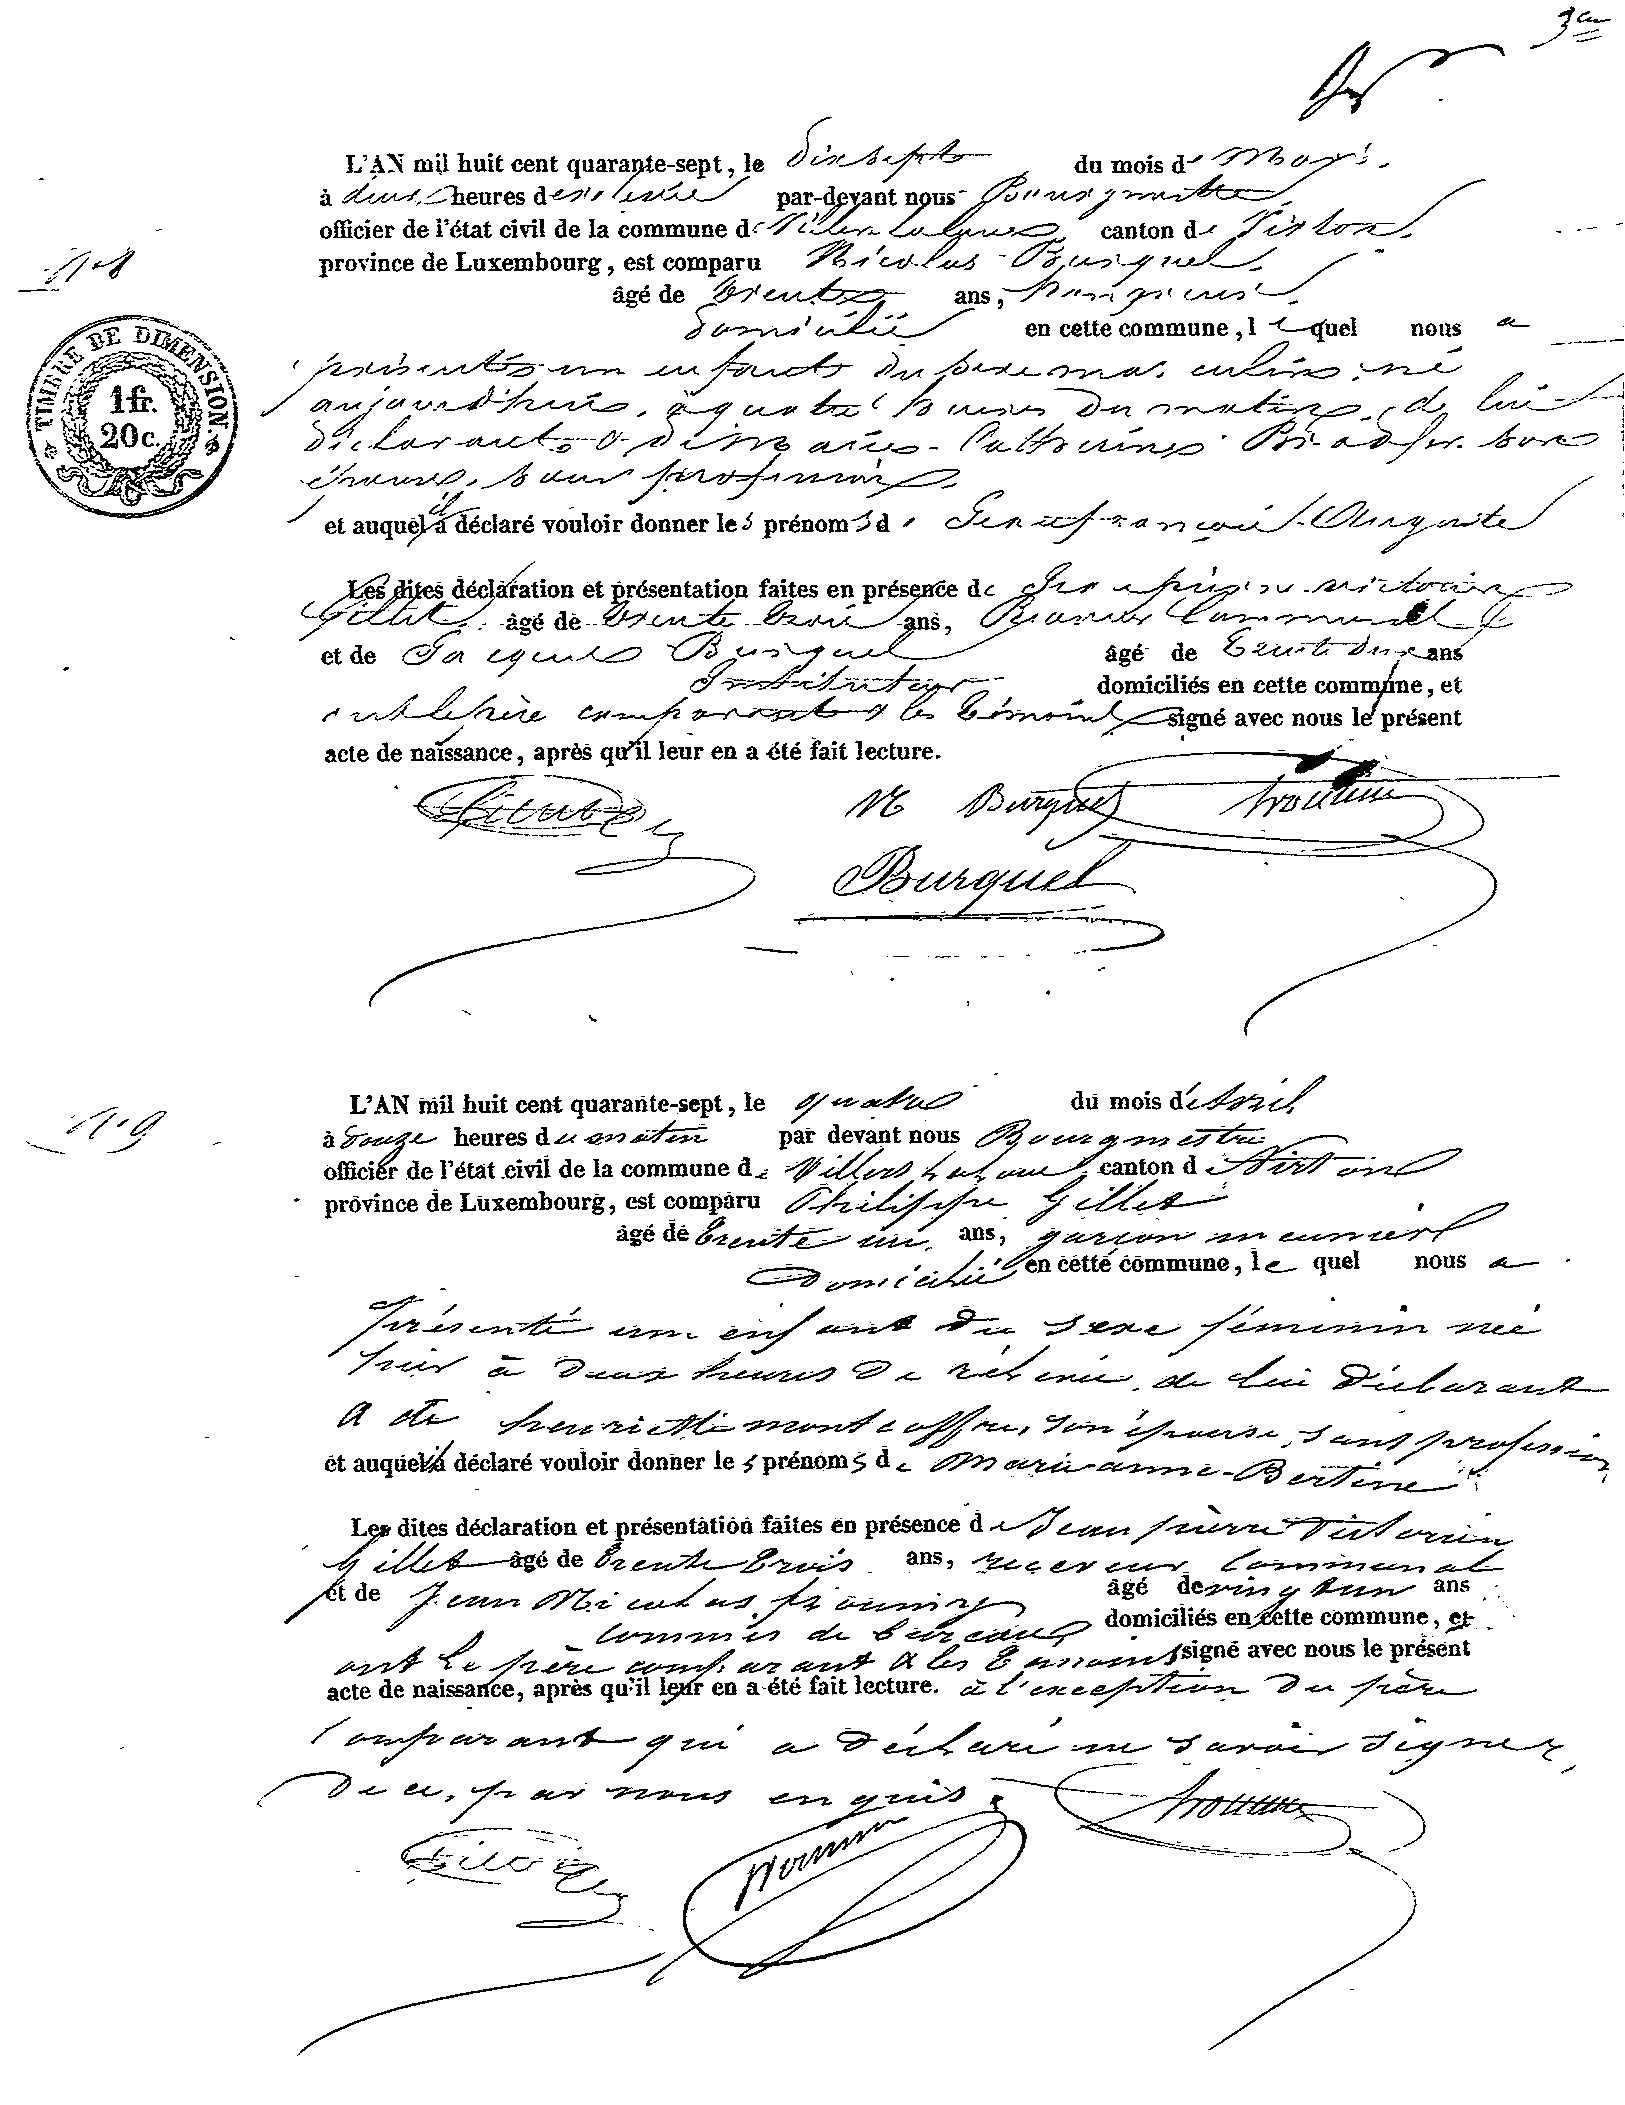 3em
L'AN mil huit cent quarante-sept, le dix sept du mois de Mars.
à deux heures de relevée par-devant nous Bourgmestre
officier de l'état civil de la commune de Villers la loue, canton de Virton.
N° 8
province de Luxembourg, est comparu Nicolas Burquel.
âgé de trente ans,
domicilié en cette commune, le quel nous a
TIMBRE DE DIMENSION
1 fr.
20 c.
présenté un enfant du sexe masculin, né
aujourd'hui, à quatre heures du matin, de lui
déclarant & de Marie Catherine son
épouse, sans profession.
et auquel il a déclaré vouloir donner les prénoms de Jean françois Auguste
Les dites déclaration et présentation faites en présence de Jean pierre victorien
Gillet âgé de trente trois ans, Receveur Communal
et de Jacques Burquel âgé de trente deux ans
Instituteur domiciliés en cette commune, et
ont le père comparant & les témoins signé avec nous le présent
acte de naissance, après qu'il leur en a été fait lecture.
N Burquel
Burquel
L'AN mil huit cent quarante-sept, le quatre du mois d'Avril
N° 9
à onze heures du matin par devant nous Bourgmestre
officier de l'état civil de la commune de Villers la loue, canton de Virton
province de Luxembourg, est comparu Philippe Gillet
âgé de trente un ans, garçon meunier
Domicilié en cette commune, le quel nous a
présenté un enfant du sexe féminin née
hier à deux heures de relevée, de lui déclarant
& de henriette montcoffre, son épouse, sans profession
et auquel il a déclaré vouloir donner les prénoms de marie-anne-Bertine
Les dites déclaration et présentation faites en présence de Jean pierre Victorien
Gillet âgé de trente trois ans, receveur Communal
et de Jean Nicolas âgé de vingt un ans
commis de bureau domiciliés en cette commune, et
ont le père comparant & les témoins signé avec nous le présent
acte de naissance, après qu'il leur en a été fait lecture. à l'exception du père
comparant qui a déclaré ne savoir signer,
de ce, par nous enquis.